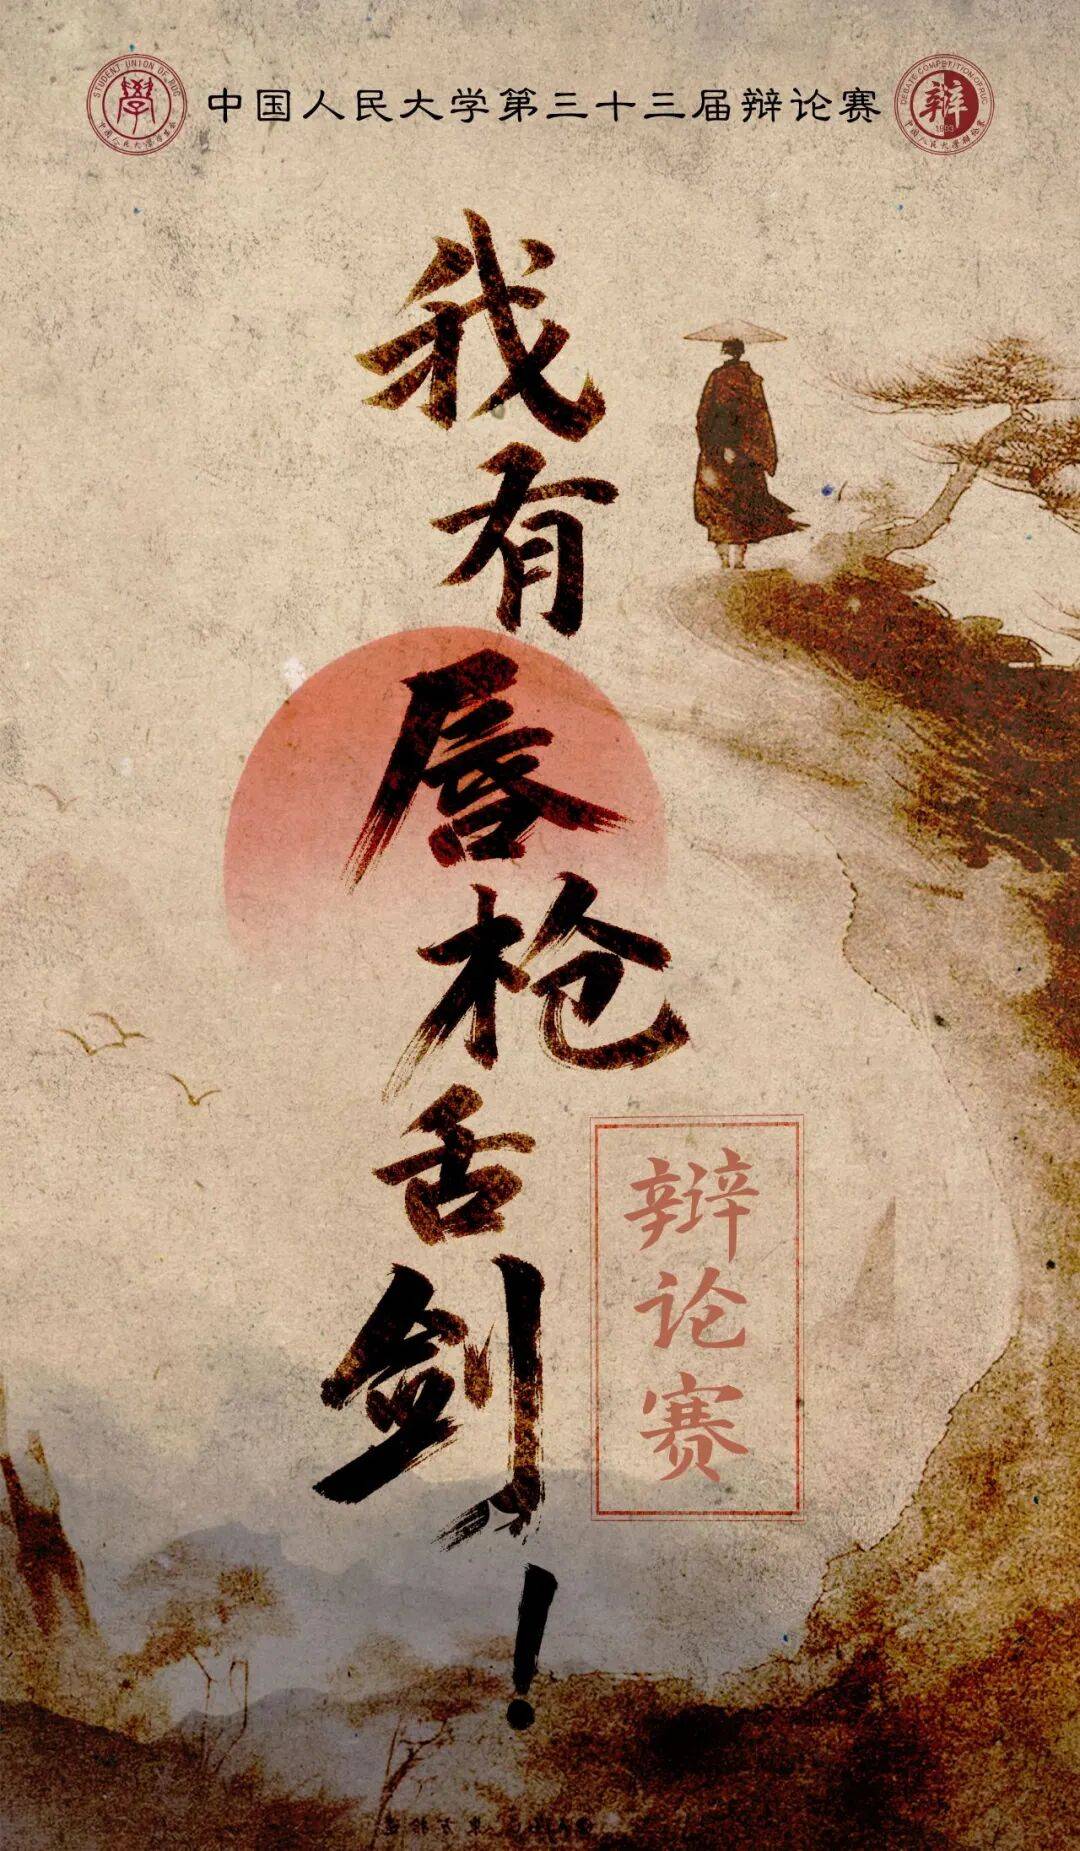 STUDENT UNION OF RUC
學
中国人民大学学生会
中国人民大学第三十三届辩论赛
DEBATE COMPETITION OF RUC
辩
中国人民大学辩论赛
我有唇枪舌剑！
辩论赛